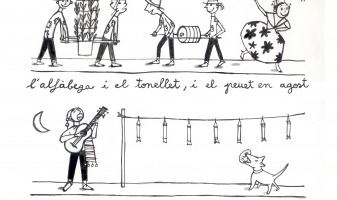 l'alfàbega i el tonellet, i el peuet en agost